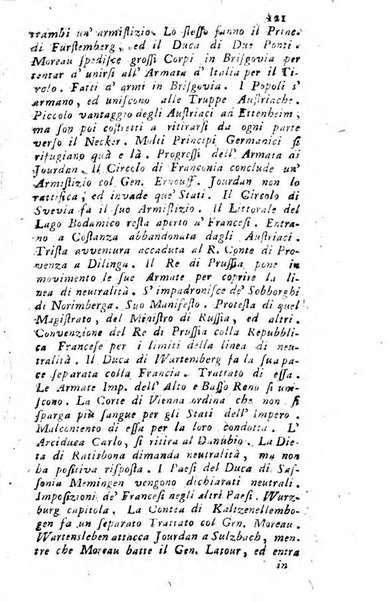 121
trambi un' armistizio. Lo stesso fanno il Princ.
di Furstemberg, ed il Duca di Due Ponti.
Moreau spedisce grossi Corpi in Brisgovia per
tentar d' unirsi all' Armata d' Italia per il Ti-
rolo. Fatti d' armi in Brisgovia. I Popoli s'
armano, ed uniscono alle Truppe Austriache.
Piccolo vantaggio degli Austriaci ad Ettenheim;
ma son poi costretti a ritirarsi da ogni parte
verso il Necker. Molti Principi Germanici si
rifugiano quà e là. Progressi dell' Armata di
Jourdan. Il Circolo di Franconia conclude un'
Armistizio col Gen. Ernouff. Jourdan non lo
ratifica, ed invade que' Stati. Il Circolo di
Svevia fà il suo Armistizio. Il Littorale del
Lago Bodamico resta aperto a' Francesi. Entra-
no a Costanza abbandonata dagli Austriaci.
Trista avventura accaduta al R. Conte di Pro-
venza a Dilinga. Il Re di Prussia pone in
movimento le sue Armate per coprire la li-
nea di neutralità. S' impadronisce de' Sobborghi
di Norimberga. Suo Manifesto. Protesta di quel
Magistrato, del Ministro di Russia, ed altri.
Convenzione del Re di Prussia colla Repubbli-
ca Francese per i limiti della linea di neu-
tralità. Il Duca di Wartemberg fa la sua pa-
ce separata colla Francia. Trattato di essa.
Le Armate Imp. dell' Alto e Basso Reno si uni-
scono. La Corte di Vienna ordina che non si
sparga più sangue per gli Stati dell' Impero.
Malcontento di essa per la loro condotta. L'
Arciduca Carlo, si ritira al Danubio. La Die-
ta di Ratisbona dimanda neutralità, ma non
ha positiva risposta. I Paesi del Duca di Sas-
sonia Memingen vengono dichiarati neutrali.
Imposizioni de' Francesi negli altri Paesi. Wurz-
burg capitola. La Contea di Kaltzenellembo-
gen fa un separato Trattato col Gen. Moreau.
Wartensleben attacca Jourdan a Sulzbach, men-
tre che Moreau batte il Gen. Latour, ed entra
in